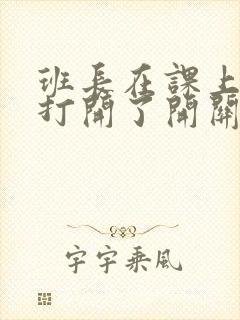 班長在課上
打開了開關
字字乘風